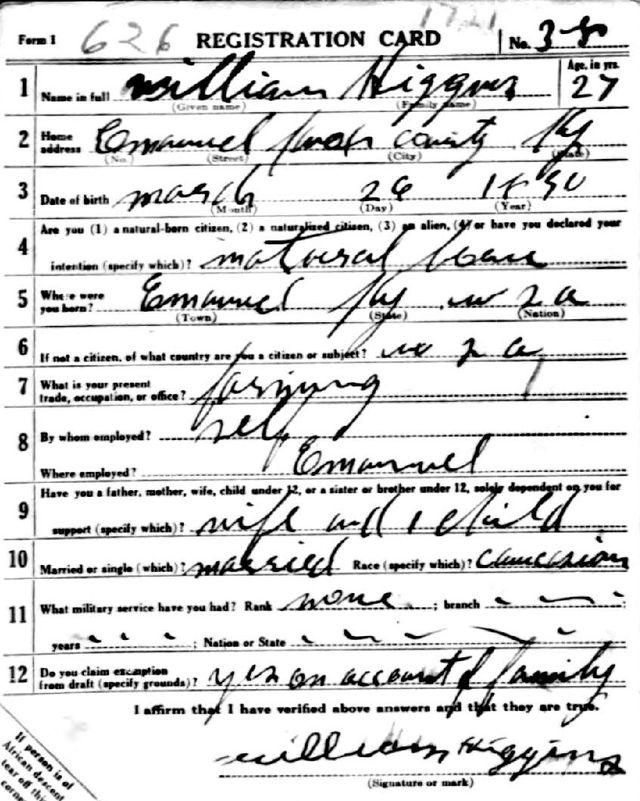 1721
Form 1 626 REGISTRATION CARD No. 38
1 Name in full william Higgins Age, in yrs. 27
(Given name) (Family name)
2 Home address Emanuel Knox county Ky
(No.) (Street) (City) (State)
3 Date of birth march 26 1890
(Month) (Day) (Year)
Are you (1) a natural-born citizen, (2) a naturalized citizen, (3) an alien, (4) or have you declared your
4 intention (specify which)? natural born
5 Where were you born? Emanuel Ky u s a
(Town) (State) (Nation)
6 If not a citizen, of what country are you a citizen or subject? u s a
7 What is your present trade, occupation, or office? farming
8 By whom employed? self
Where employed? Emanuel
Have you a father, mother, wife, child under 12, or a sister or brother under 12, solely dependent on you for
9 support (specify which)? wife and 1 child
10 Married or single (which)? married Race (specify which)? caucasion
11 What military service have you had? Rank none ; branch ;
years ; Nation or State
12 Do you claim exemption from draft (specify grounds)? yes on account of family
I affirm that I have verified above answers and that they are true.
william Higgins
(Signature or mark)
If person is of
African descent
tear off this
corner